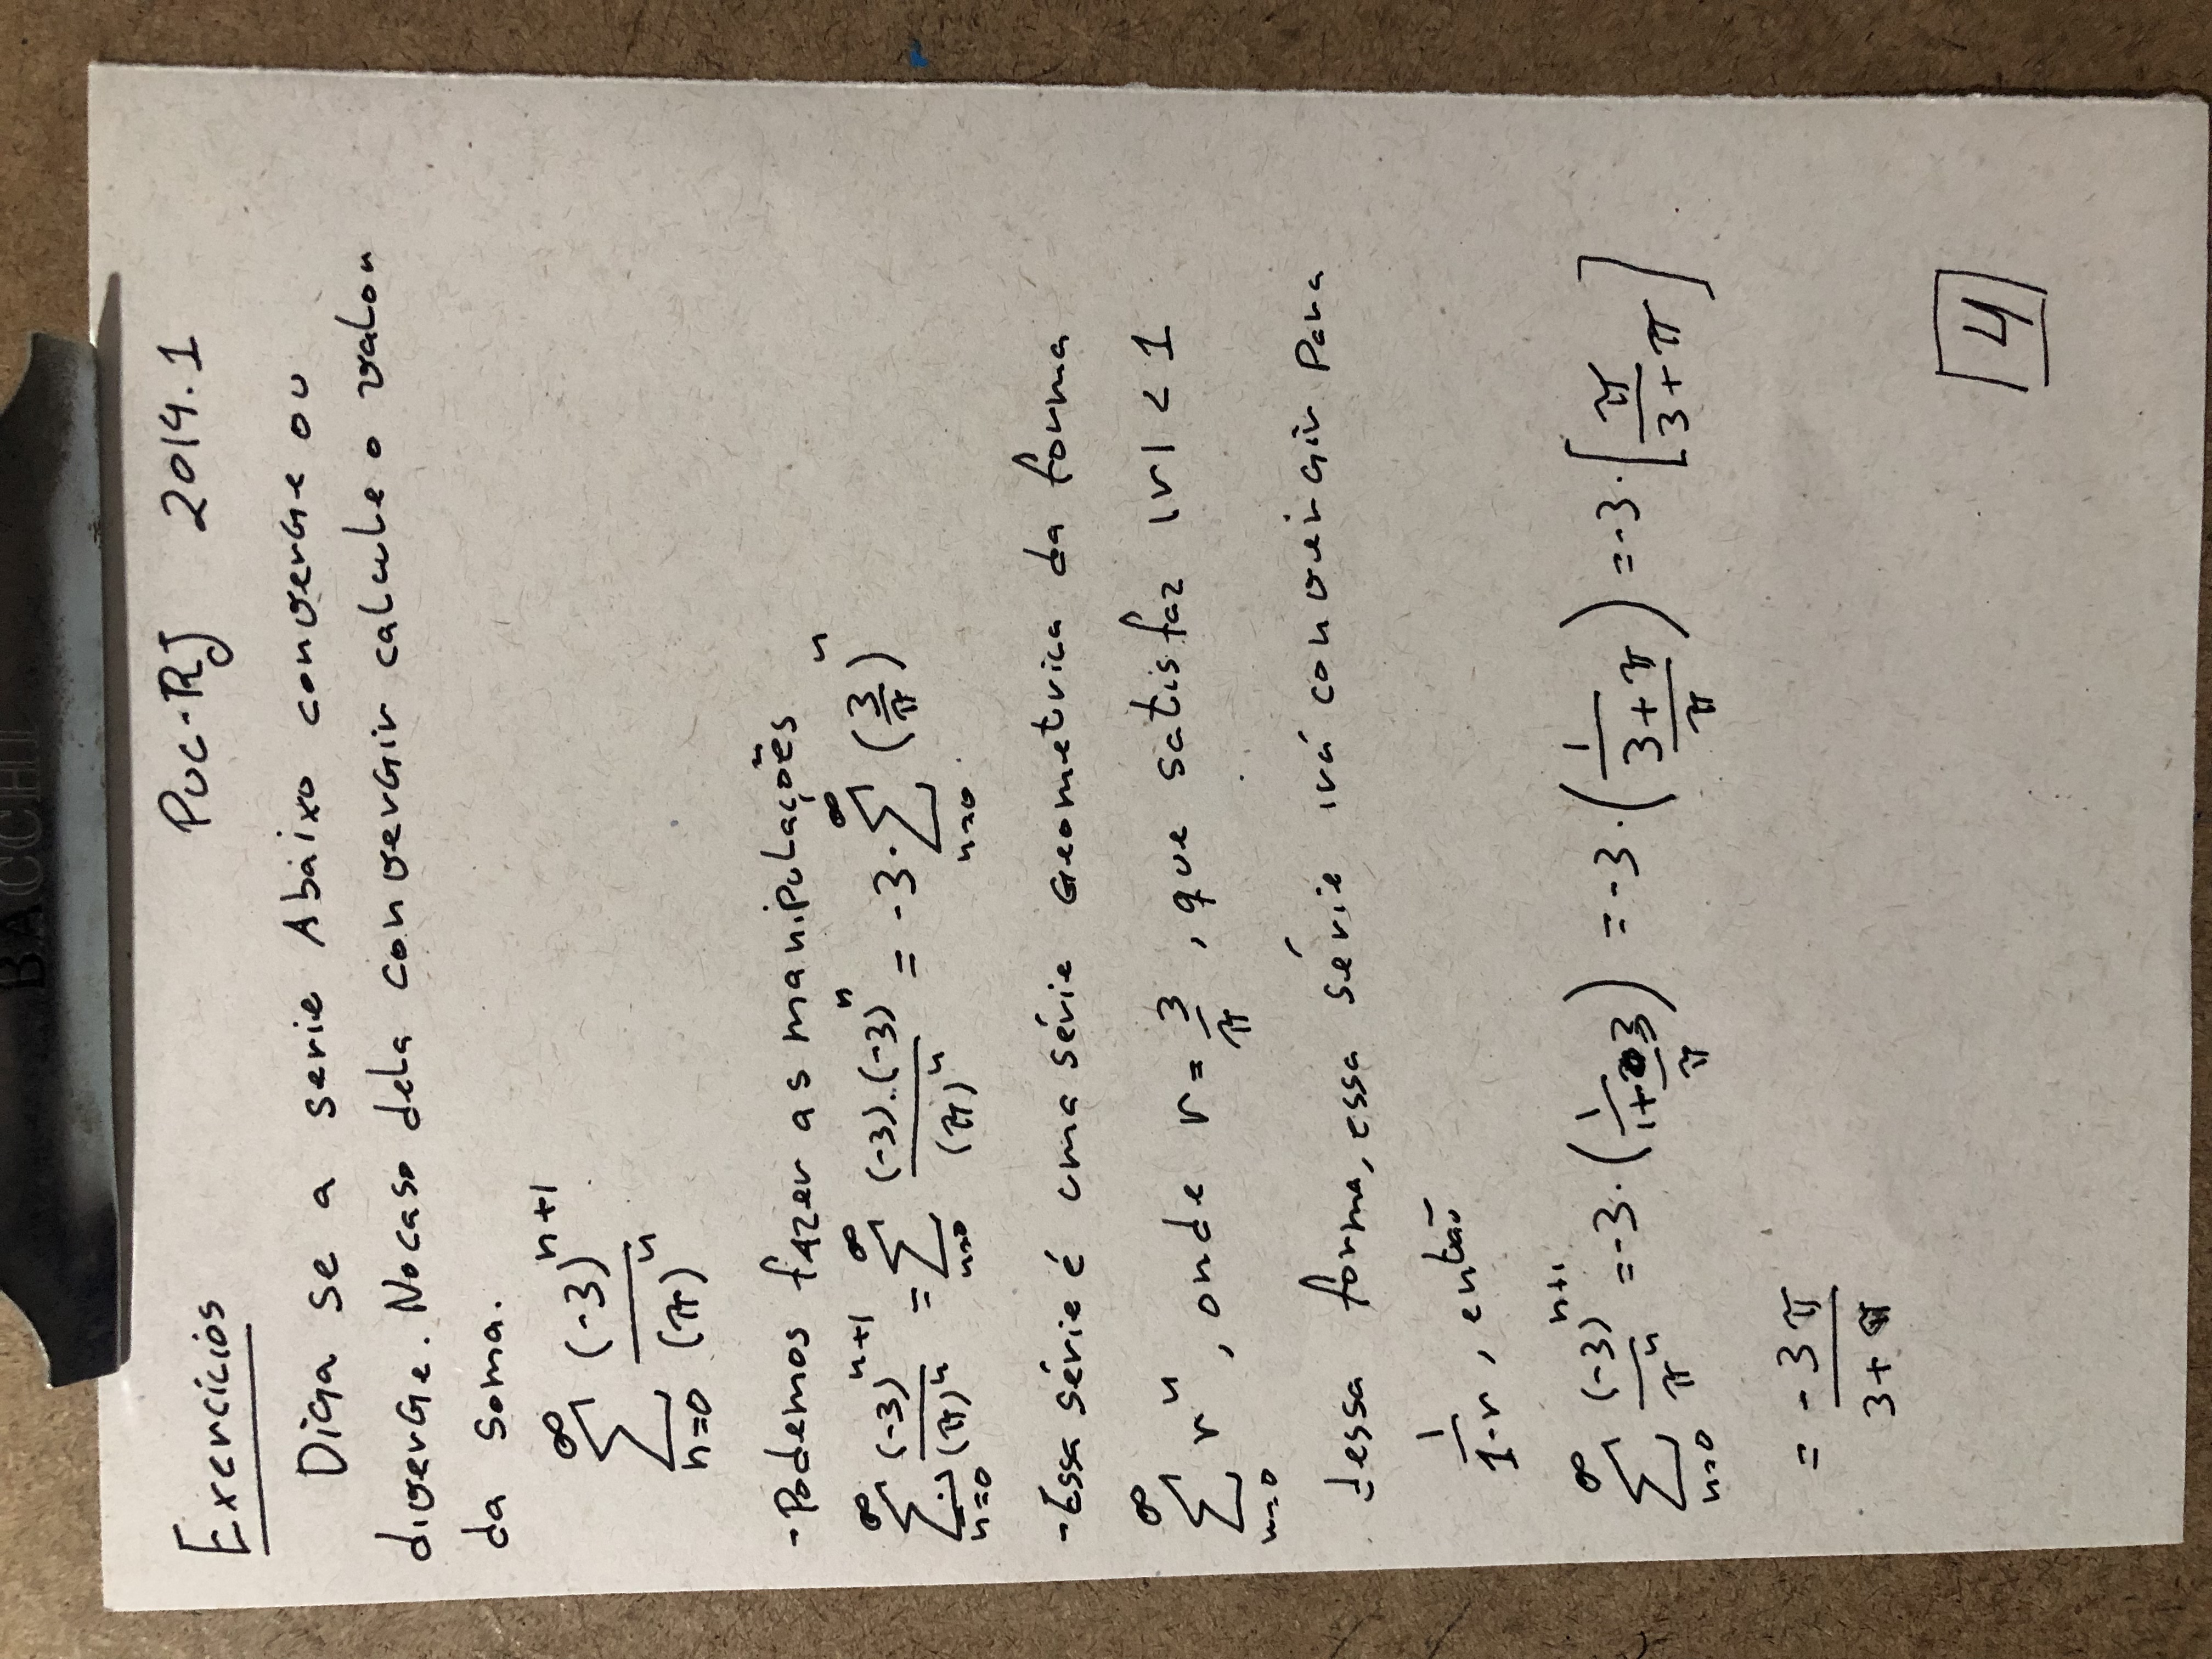 BACCHI
Exercícios PUC-RJ 2014.1
Diga se a serie Abaixo converge ou
diverge. No caso dela convergir calcule o valor
da soma.
∞ Σ n=0 (-3)^(n+1) / (π)^n
-Podemos fazer as manipulações
∞ Σ n=0 (-3)^(n+1) / (π)^n = ∞ Σ n=0 (-3).(-3)^n / (π)^n = -3 · ∞ Σ n=0 (3/π)^n
-Essa série é uma série Geometrica da forma
∞ Σ n=0 r^n, onde r = 3/π, que satisfaz |r| < 1
dessa forma, essa série irá convergir para
1/(1-r), então
∞ Σ n=0 (-3)^(n+1) / π^n = -3 · (1/(1+3/π)) = -3 · (1/((3+π)/π)) = -3 · [π/(3+π)]
= -3π / (3+π)
4